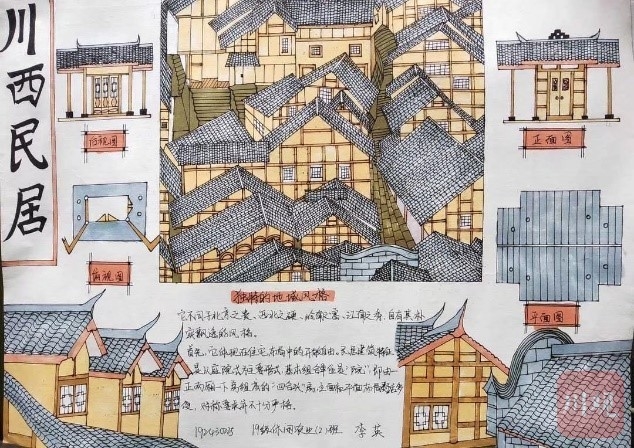 川西民居
后视图
正面图
俯视图
平面图
独特的地域风格
它不同于北京之贵、西北之硬、岭南之富、江南之秀，自有其朴
实飘逸的风格。
首先，它体现在住宅布局中的不拘自由。
是以庭院式为主要形式，基本组合单位是"院"，即由一
正两厢一下房组成的"四合头"房，立面和平面布局灵活多
变，对称要求并不十分严格。
19级 (2)班 李英
川观